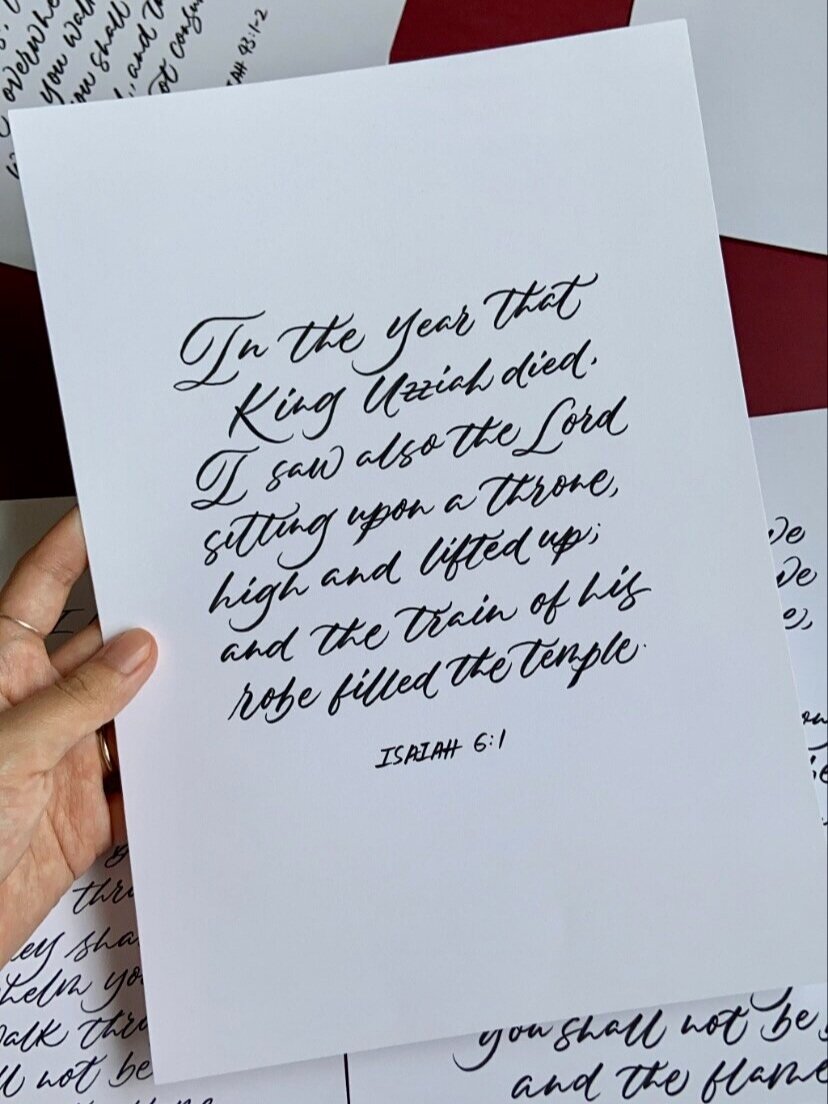 overwhe
you walk
you shall
, and th
not consu
IAH 43:1-2
In the year that
King Uzziah died.
I saw also the Lord
sitting upon a throne,
high and lifted up;
and the train of his
robe filled the temple.
ISAIAH 6:1
thro
ey sha
helm yo
alk thro
ll not be
you shall not be
and the flame